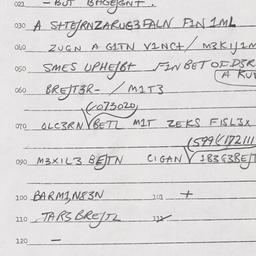 021 - BUT
030 A SHTEJRNZARUGE3FALN F1N 1ML
040 ZUGN A G1TN V1NC+/ M3K1J1M
050 SMES UPHEJBT F1NBETOFDSR
(A KUR
060 BREJT3R- / M1T3
(1073020)
070 OLC3RN BETL M1T ZEKS F1SL3X
(599(172111
090 M3X1L3 BEJTN C1GAN 1B3G3BEJT
100 BARM1,NE3N 101 +
110 TARS BREJTL 112
120 -